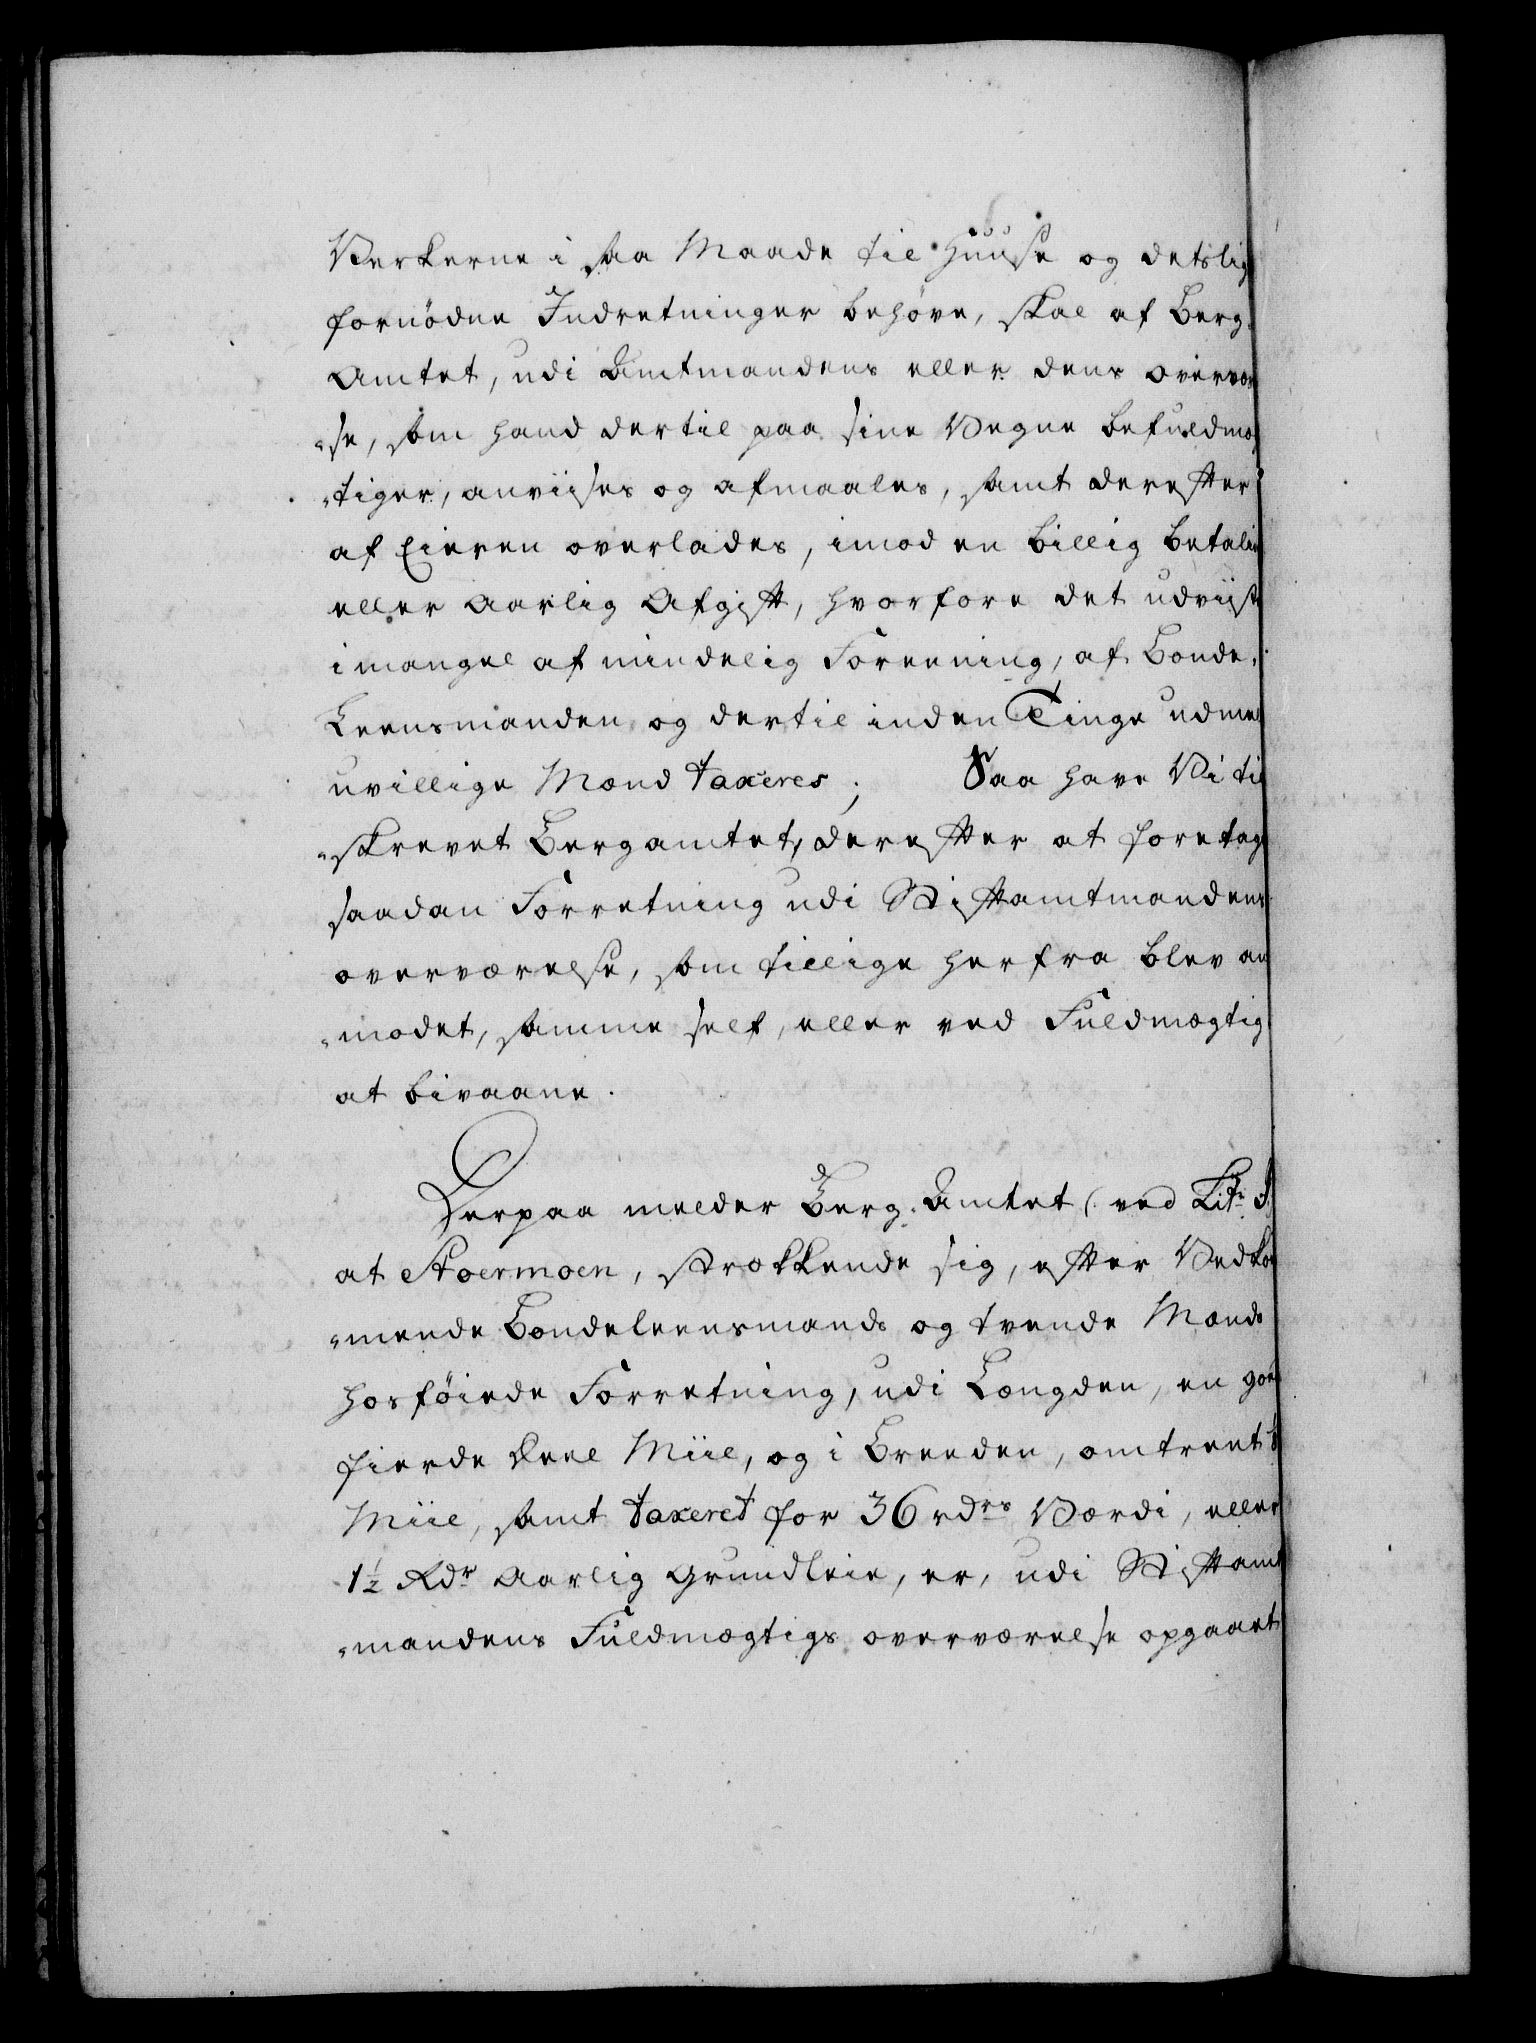 Verkerne i saa Maade til Huuse og detslig
fornödne Indretninger behøve, skal af Berg-
Amtet, udi Amtmandens eller dens overvæ
„se, som hand dertil paa sine Vegne befuldmæ
„tiger, anviises og afmaales, samt derefter
af Eieren overlades, imod en billig betalin
eller Aarlig Afgift, hvorfore det udviiste
i mangel af mindelig Foreening, af Bonde-
Leensmanden og dertil inden Tinge udmel
uvillige Mænd taxeres; Saa have Vi til
„skrevet Bergamtet, derefter at foretage
saadan Forretning udi Stiftamtmandens
overværelse, som tillige herfra blev an
„modet, samme self, eller ved Fuldmægtig
at bivaane.
Derpaa melder Berg-Amtet (ved Litr.
at Stoermoen, strækkende sig, efter Vedkom
„mende Bondeleensmands og tvende Mænds
hosföiede Forretning, udi Længden, en god
fierde Deel Miil, og i Breeden, omtrent
Miil, samt taxeret for 36 rdrs Værdi, eller
1½ Rdr Aarlig Grundleie, er, udi Stiftamt
„mandens Fuldmægtigs overværelse opgaaet